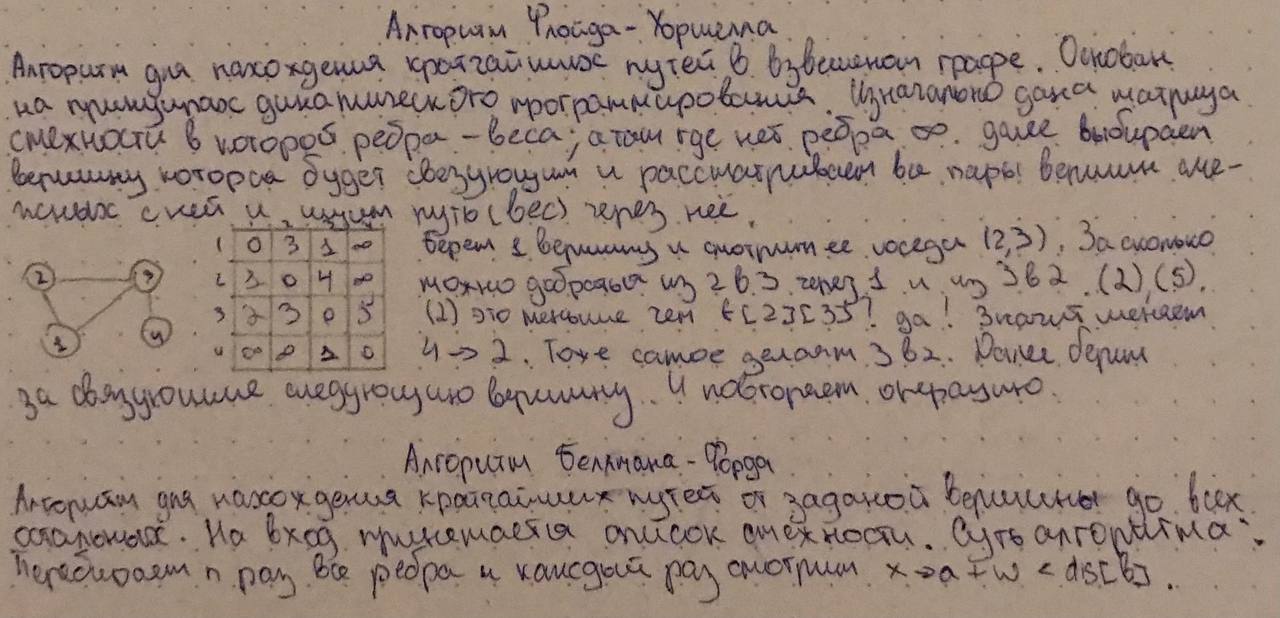 Алгоритм Флойда-Уоршелла
Алгоритм для нахождения кратчайших путей в взвешеном графе. Основан
на принципах динамического программирования. Изначально дана матрица
смежности в которой ребра - веса, а там где нет ребра ∞. Далее выбирает
вершину которса будет связующим и рассматривает все пары вершин сме-
жных с ней и ищим путь (вес) через неё.
1 2 3 4
1 0 3 1 ∞
2 3 0 4 ∞
3 2 3 0 5
4 ∞ ∞ 1 0
2 3
1 4
берем 1 вершину и смотрим ее соседи (2,3). За сколько
можно добраться из 2 в 3 через 1 и из 3 в 2. (2),(5).
(2) это меньше чем t[2][3]! да! Значит меняет
4 -> 2. Тоже самое делаят 3 в 2. Далее берим
за связующие следующию вершину. И повторяет операцию.
Алгоритм Беллмана-Форда
Алгоритм для нахождения кратчайших путей от заданой вершины до всех
остальных. На вход принемается список смежности. Суть алгоритма:
Перебирает n раз все ребра и каждый раз смотрим x->a + w < dis[b].